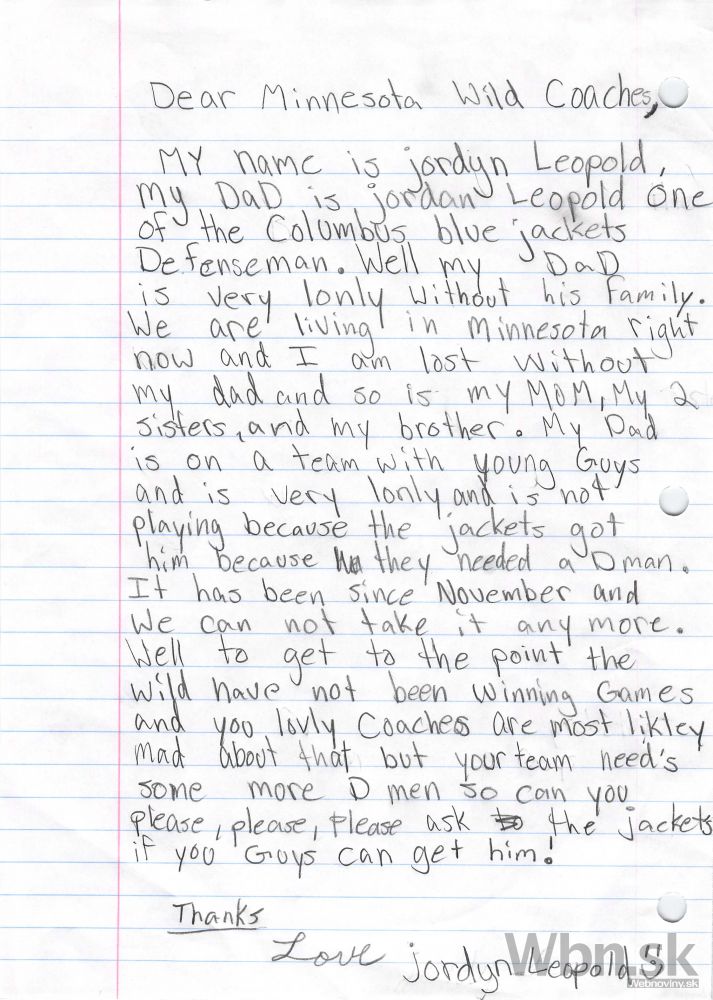 Dear Minnesota Wild Coaches,
MY name is jordyn Leopold,
my DaD is jordan Leopold one
of the Columbus blue jackets
Defenseman. Well my DaD
is very lonly without his family.
We are living in Minnesota right
now and I am lost without
my dad and so is my MOM, My 2
sisters, and my brother. My Dad
is on a team with young Guys
and is very lonly and is not
playing because the jackets got
him because they needed a D man.
It has been since November and
We can not take it any more.
Well to get to the point the
wild have not been winning Games
and you lovly Coaches are most likley
mad about that but your team need's
some more D men so can you
please, please, Please ask the jackets
if you Guys can get him!
Thanks
Love jordyn Leopold
Wbn.sk
Webnoviny.sk